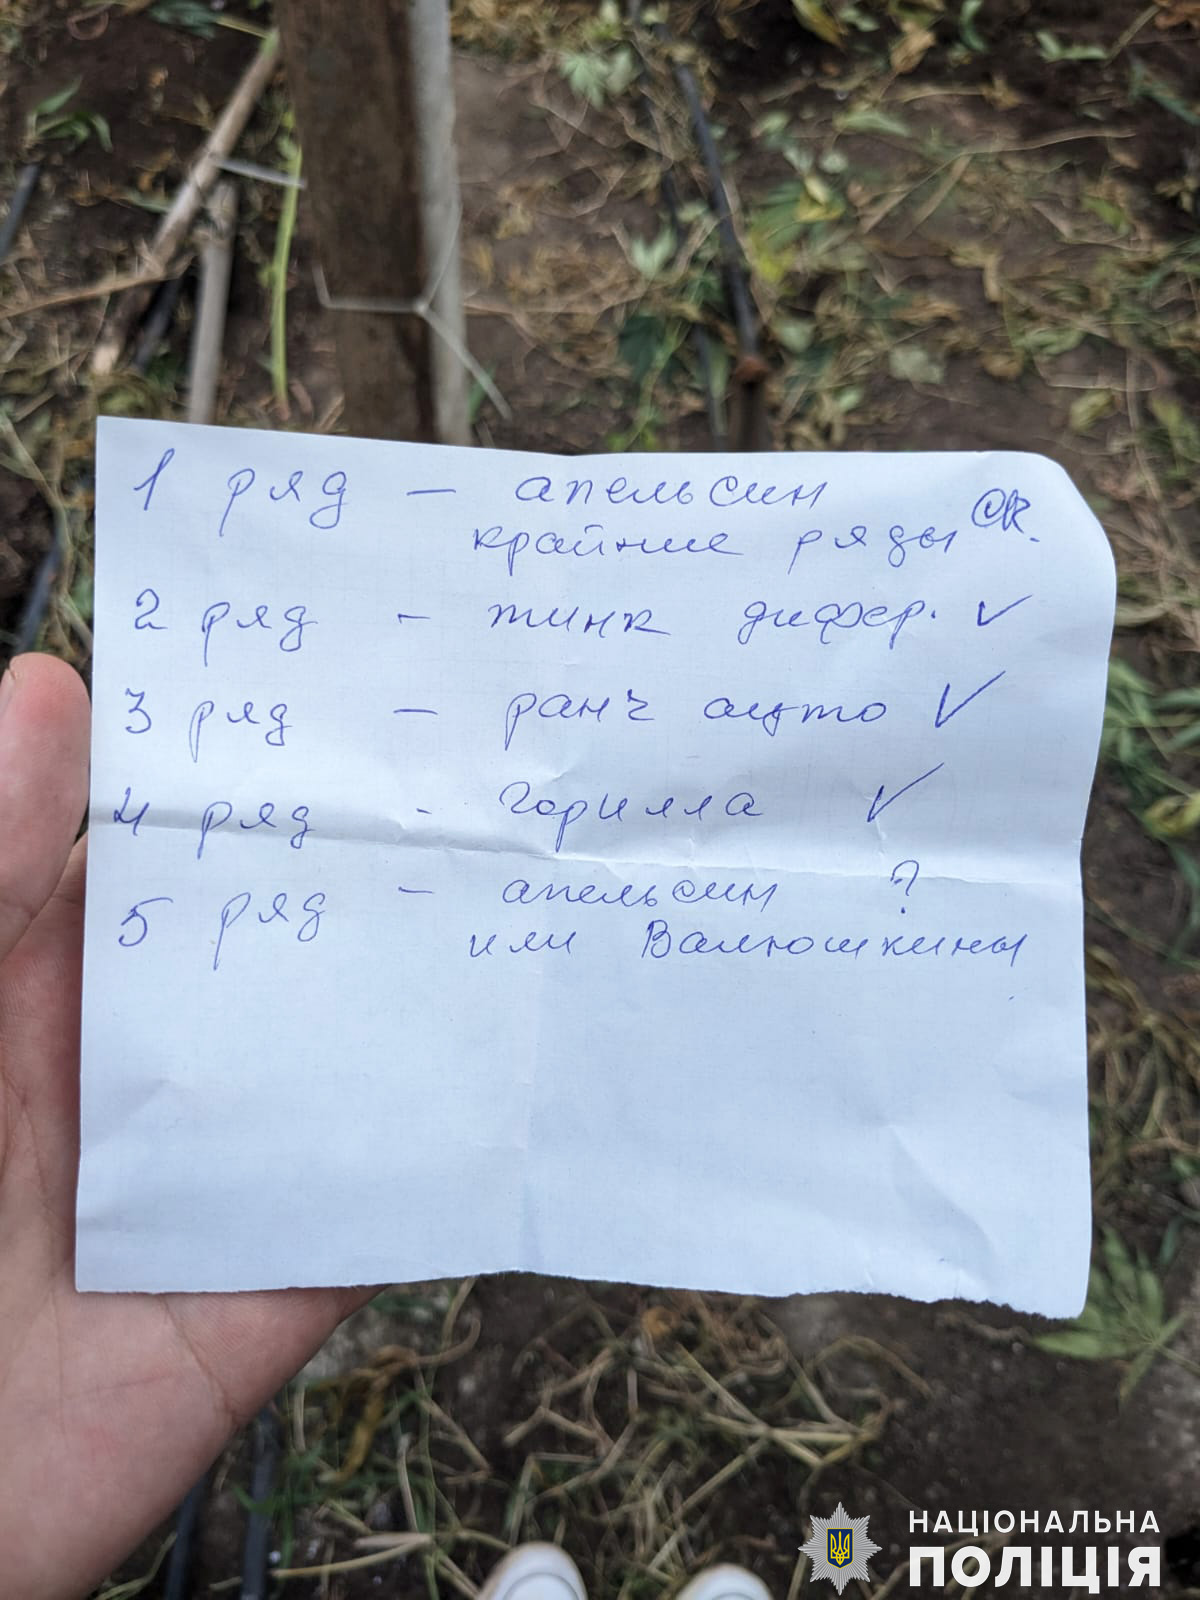 1 ряд — апельсин
крайние ряды ск.
2 ряд - пинк дифер. ✓
3 ряд — ранч ауто ✓
4 ряд - горилла ✓
5 ряд — апельсин ?
или Валюшкины
НАЦІОНАЛЬНА
ПОЛІЦІЯ